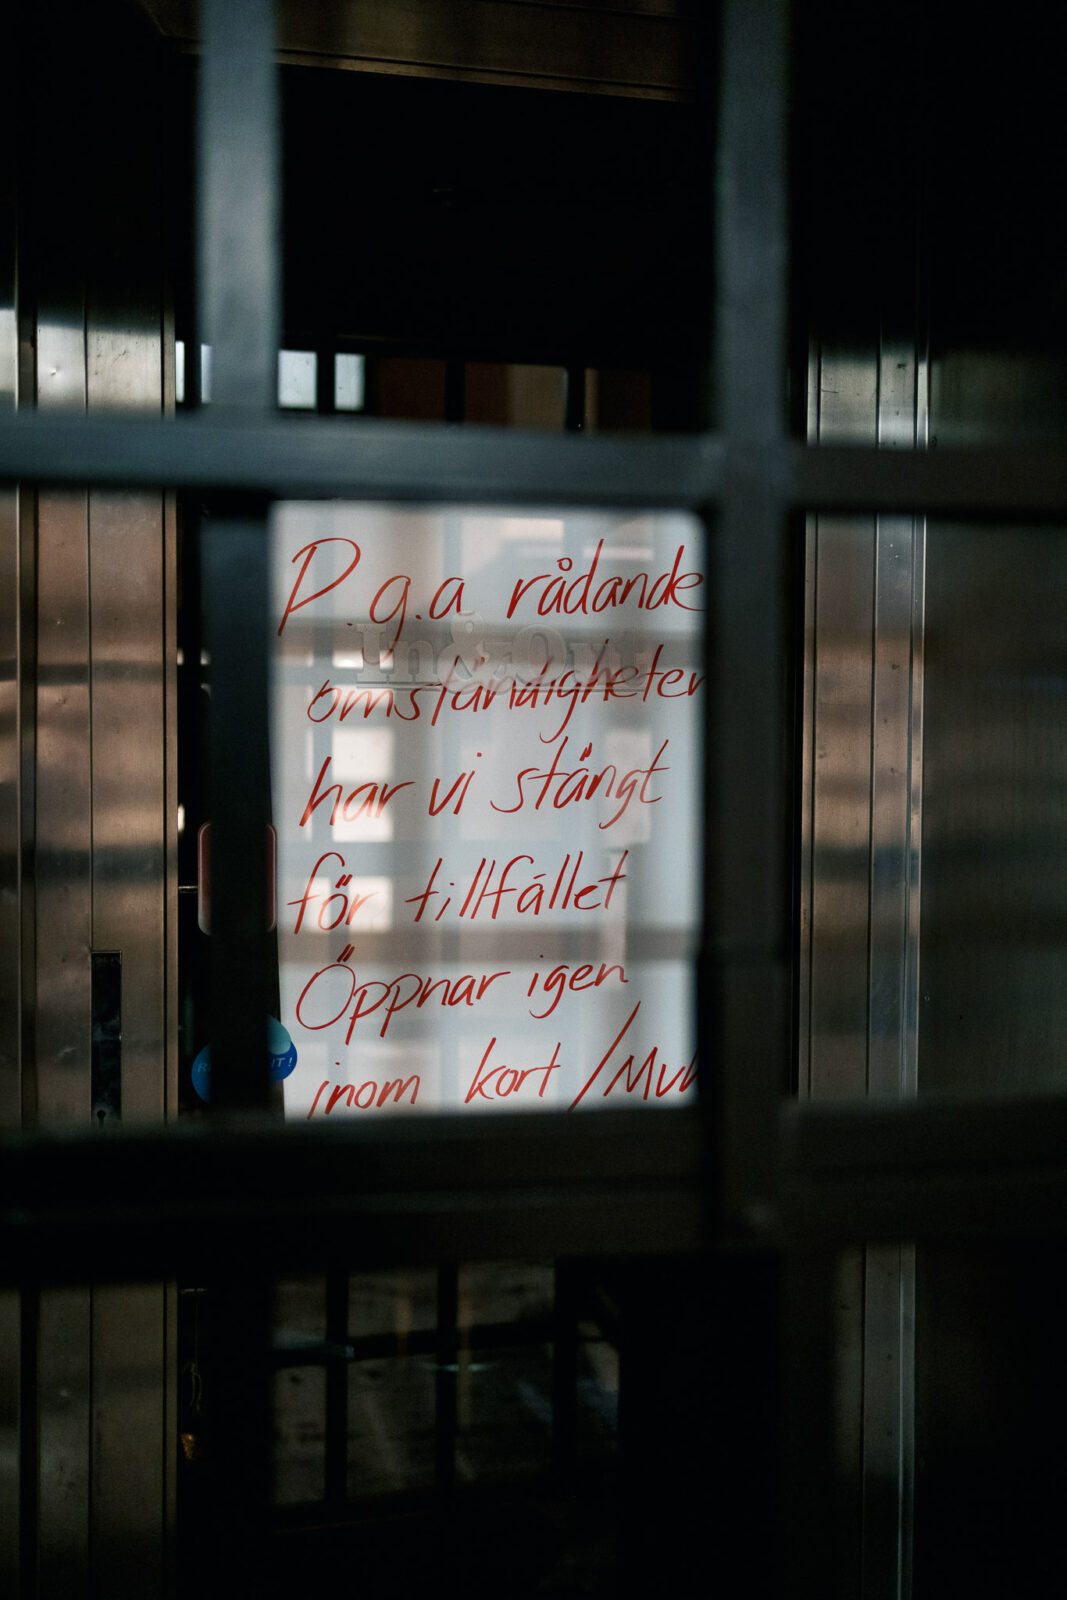 P.g.a rådande
In&Out
omständigheter
har vi stängt
för tillfället
Öppnar igen
inom kort /